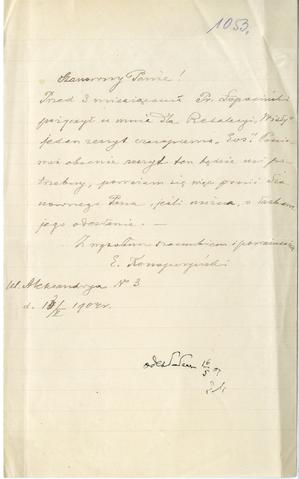 1053.
Szanowny Panie!
Przed 3 miesiącami Pr. Łopaciński
pożyczył u mnie dla Redakcyi „Wisły"
jeden zeszyt czasopisma
mi obecnie zeszyt ten będzie
trzebny, pozwalam się więc prosić Sza-
nownego Pana, jeśli można, o łaskawe
jego odesłanie. —
Z wysokim szacunkiem i poważaniem
E. Konopczyński
Ul. Aleksandrya № 3
d. 1904 r.
odesłałem 16/5 04